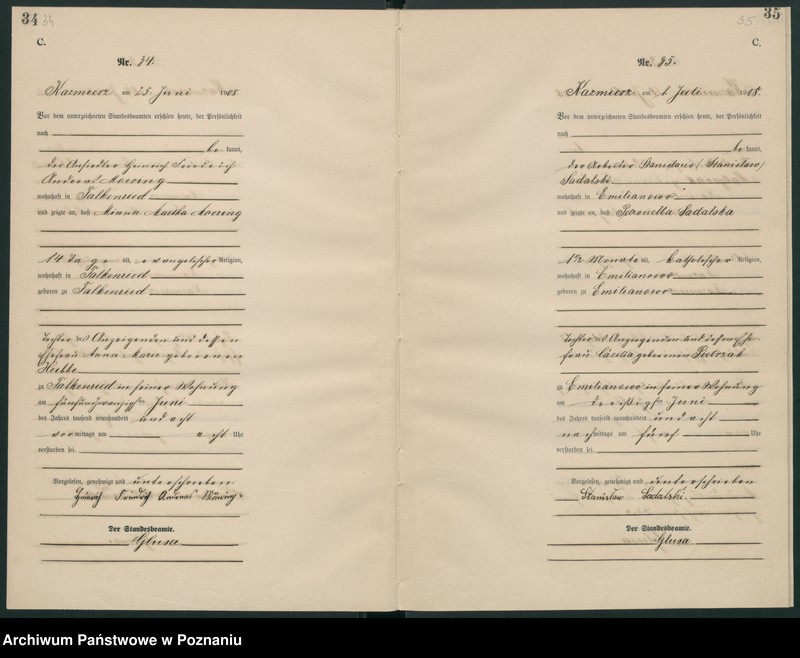 34 34
C.
Nr. 34.
Kazmierz am 25. Juni 1908.
Vor dem unterzeichneten Standesbeamten erschien heute, der Persönlichkeit
nach
be kannt,
der Ansiedler Heinrich Friedrich
Andreas Moering
wohnhaft in Falkenried
und zeigte an, daß Minna Martha Moering
14 Tage alt, evangelischer Religion,
wohnhaft in Falkenried
geboren zu Falkenried
Tochter des Anzeigenden und dessen
Ehefrau Anna Marie geborenen
zu Falkenried in seiner Wohnung
am fünfundzwanzigsten Juni
des Jahres tausend neunhundert und acht
vormittags um acht Uhr
verstorben sei.
Vorgelesen, genehmigt und unterschrieben
Heinrich Friedrich Andreas Möring.
Der Standesbeamte.
Glusa
35 35
C.
Nr. 35.
Kazmierz am 1. Juli 1908.
Vor dem unterzeichneten Standesbeamten erschien heute, der Persönlichkeit
nach
be kannt,
der Arbeiter Stanislaus (Stanislaw)
Sadalski
wohnhaft in Emilianowo
und zeigte an, daß Petronella Sadalska
1½ Monate alt, katholischer Religion,
wohnhaft in Emilianowo
geboren zu Emilianowo
Tochter des Anzeigenden und dessen Ehe-
frau Cäcilia geborenen Pietrzak
zu Emilianowo in seiner Wohnung
am dreißigsten Juni
des Jahres tausend neunhundert und acht
nachmittags um fünf Uhr
verstorben sei.
Vorgelesen, genehmigt und unterschrieben
Stanisław Sadalski.
Der Standesbeamte.
Glusa
Archiwum Państwowe w Poznaniu